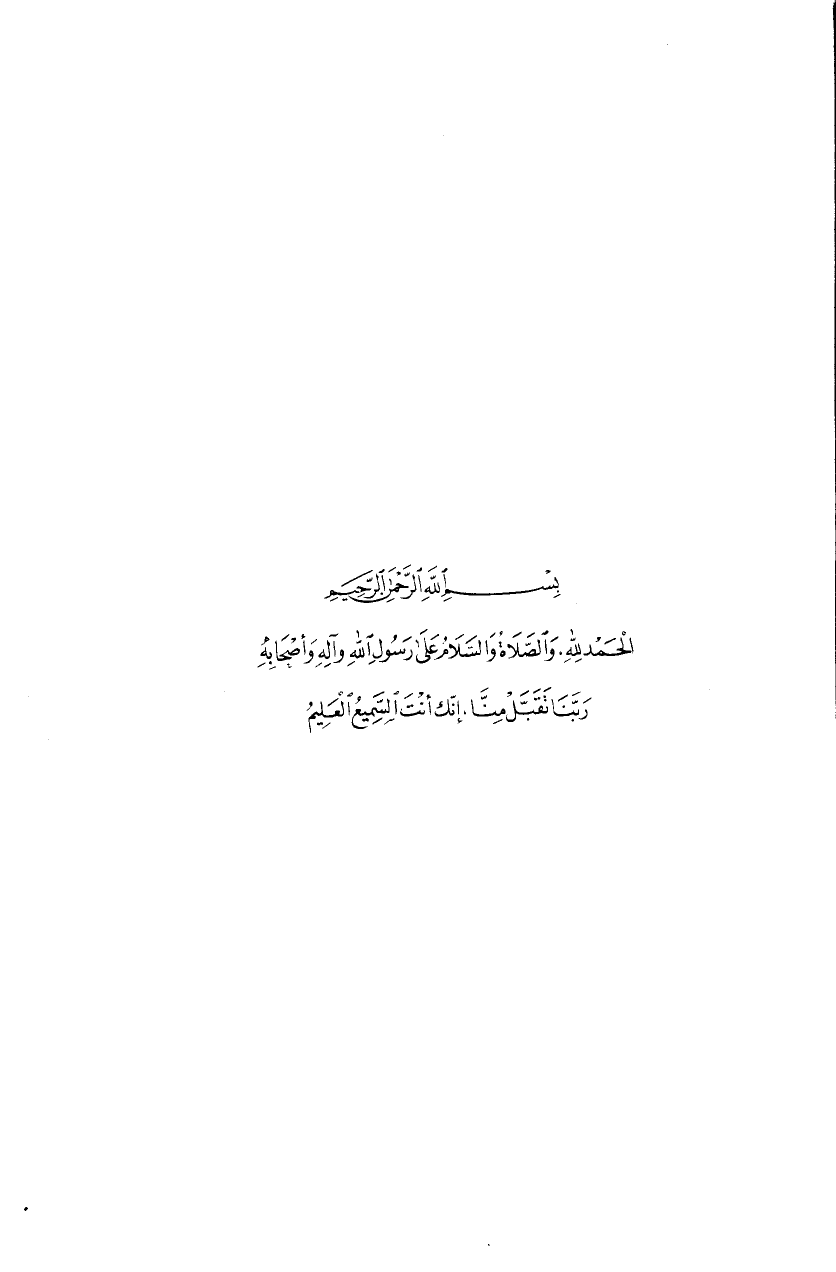 بِسْمِ ٱللَّهِ ٱلرَّحْمٰنِ ٱلرَّحِيمِ
الْحَمْدُ لِلَّهِ. وَٱلصَّلَاةُ وَٱلسَّلَامُ عَلَىٰ رَسُولِ ٱللَّهِ وآلِهِ وَأَصْحَابِهِ
رَبَّنَا تَقَبَّلْ مِنَّا. إِنَّكَ أَنْتَ ٱلسَّمِيعُ ٱلْعَلِيمُ